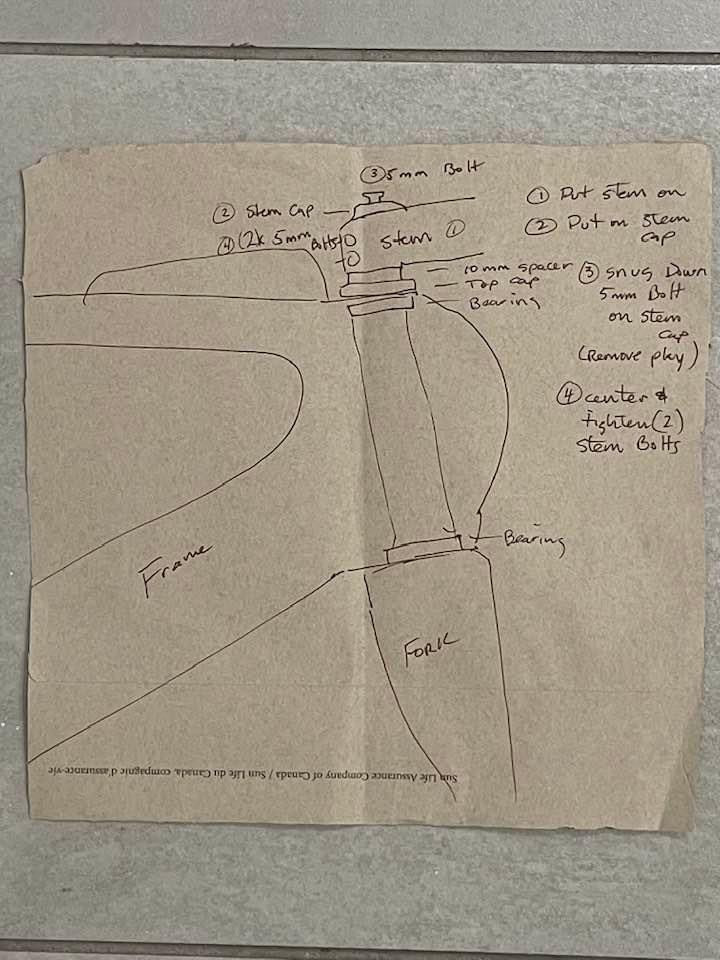 ③ 5mm Bolt
② Stem Cap
④ (2x 5mm Bolts
Stem ①
10mm spacer
Top cap
Bearing
① Put stem on
② Put on Stem
cap
③ Snug Down
5mm Bolt
on stem
cap
(Remove play)
④ center &
tighten (2)
Stem Bolts
Bearing
Frame
FORK
Sun Life Assurance Company of Canada / Sun Life du Canada, compagnie d'assurance-vie